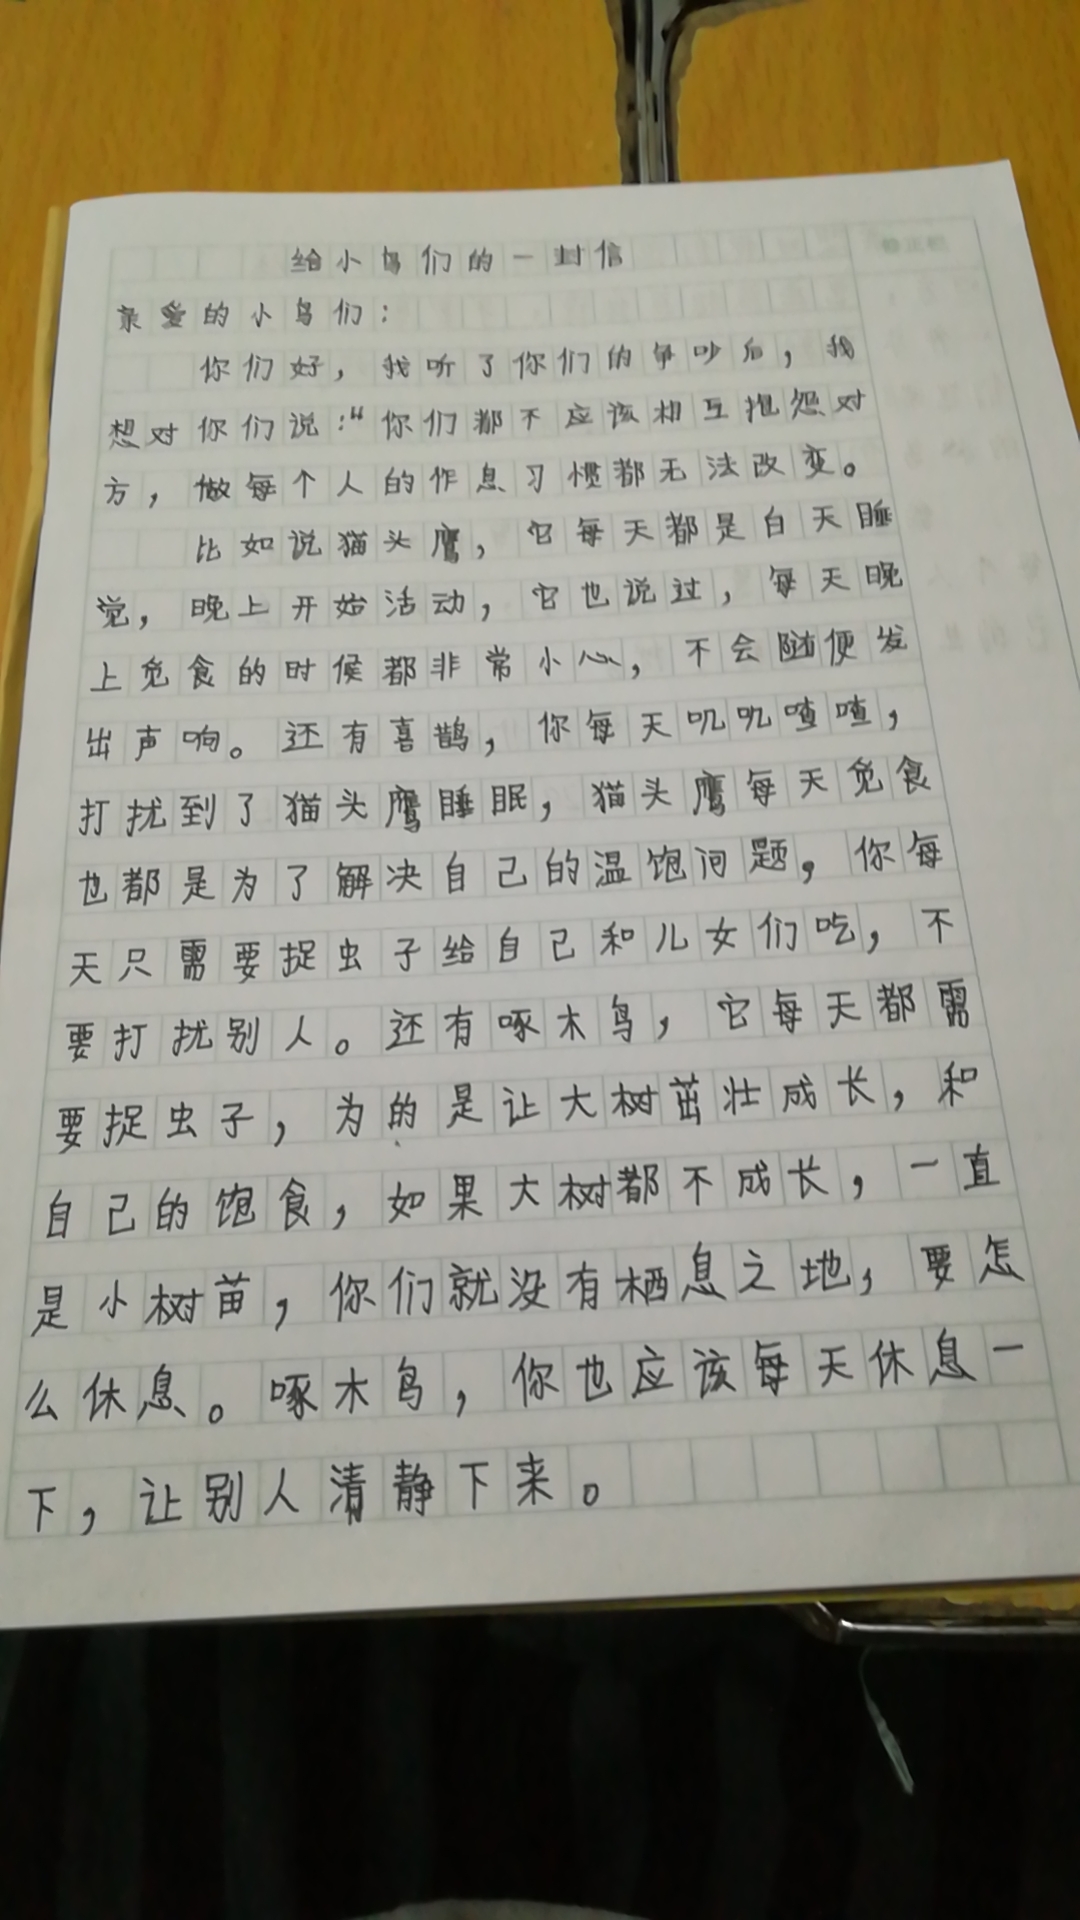 给小鸟们的一封信
亲爱的小鸟们：
你们好，我听了你们的争吵后，我
想对你们说：“你们都不应该相互抱怨对
方，做每个人的作息习惯都无法改变。
比如说猫头鹰，它每天都是白天睡
觉，晚上开始活动，它也说过，每天晚
上觅食的时候都非常小心，不会随便发
出声响。还有喜鹊，你每天叽叽喳喳，
打扰到了猫头鹰睡眠，猫头鹰每天觅食
也都是为了解决自己的温饱问题，你每
天只需要捉虫子给自己和儿女们吃，不
要打扰别人。还有啄木鸟，它每天都需
要捉虫子，为的是让大树茁壮成长，和
自己的饱食，如果大树都不成长，一直
是小树苗，你们就没有栖息之地，要怎
么休息。啄木鸟，你也应该每天休息一
下，让别人清静下来。